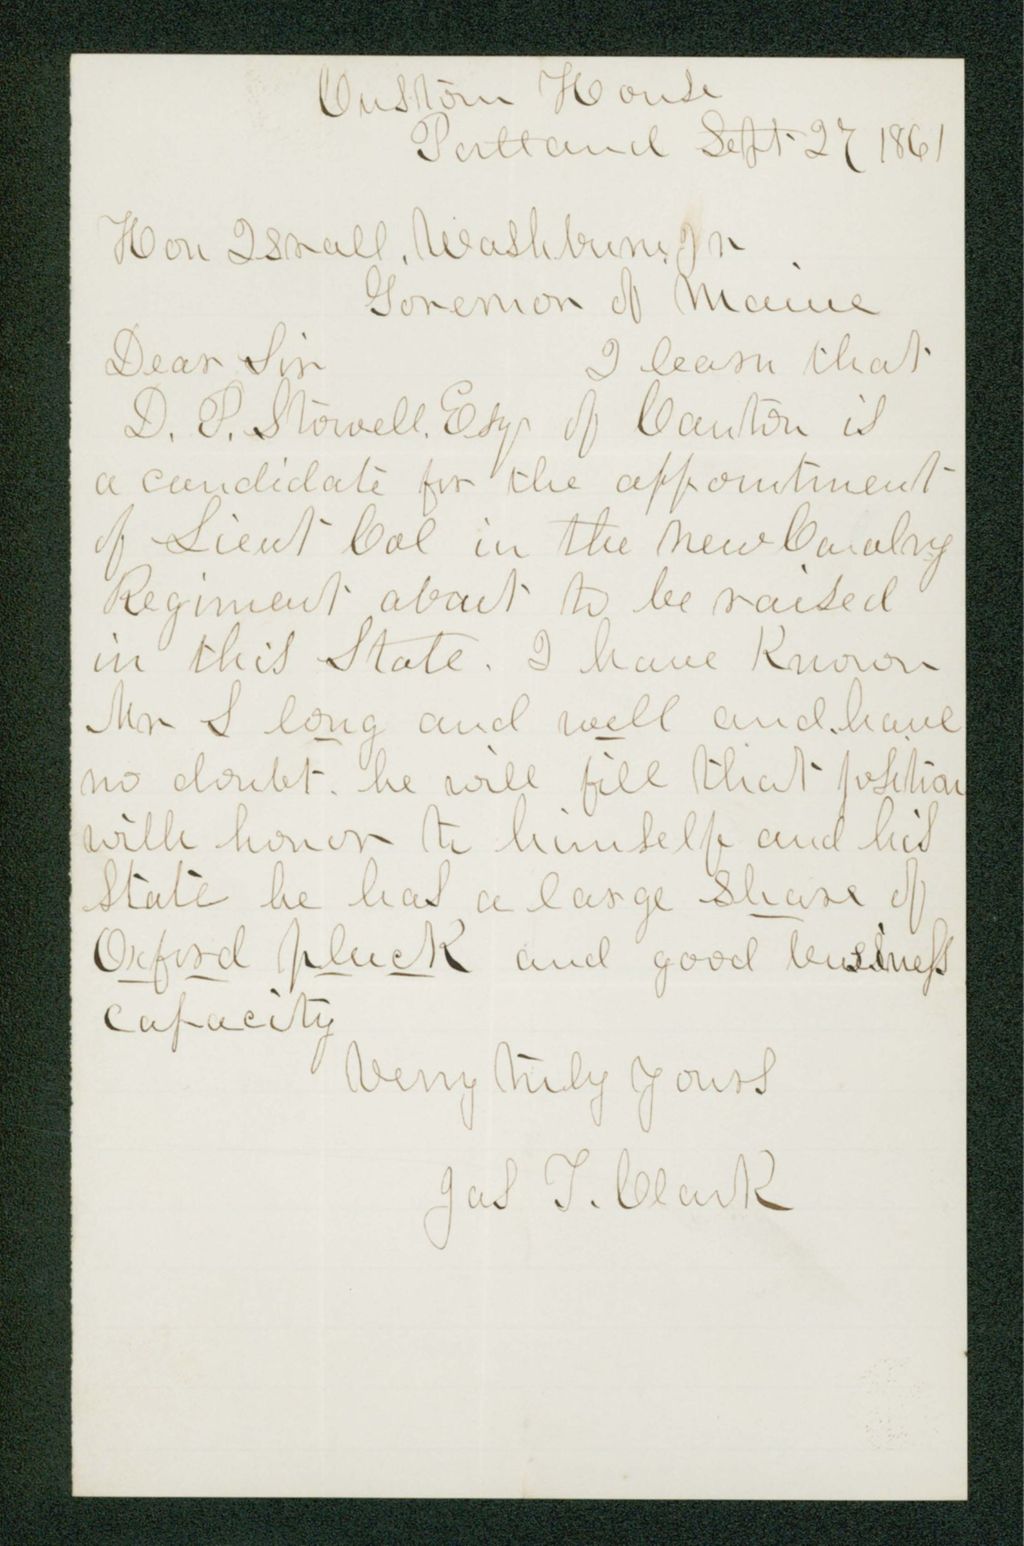 Custom House
Portland Sept 27 1861
Hon Israall, Washburn, Jr
Governor of Maine
Dear Sir I learn that
D. P. Stowell. Esqr of Canton is
a candidate for the appointment
of Lieut Col in the new Cavalry
Regiment about to be raised
in this State. I have Known
Mr S long and well and have
no doubt. he will fill that position
with honor to himself and his
State he has a large share of
Oxford pluck and good business
capacity
Verry truly yours
Jas T. Clark